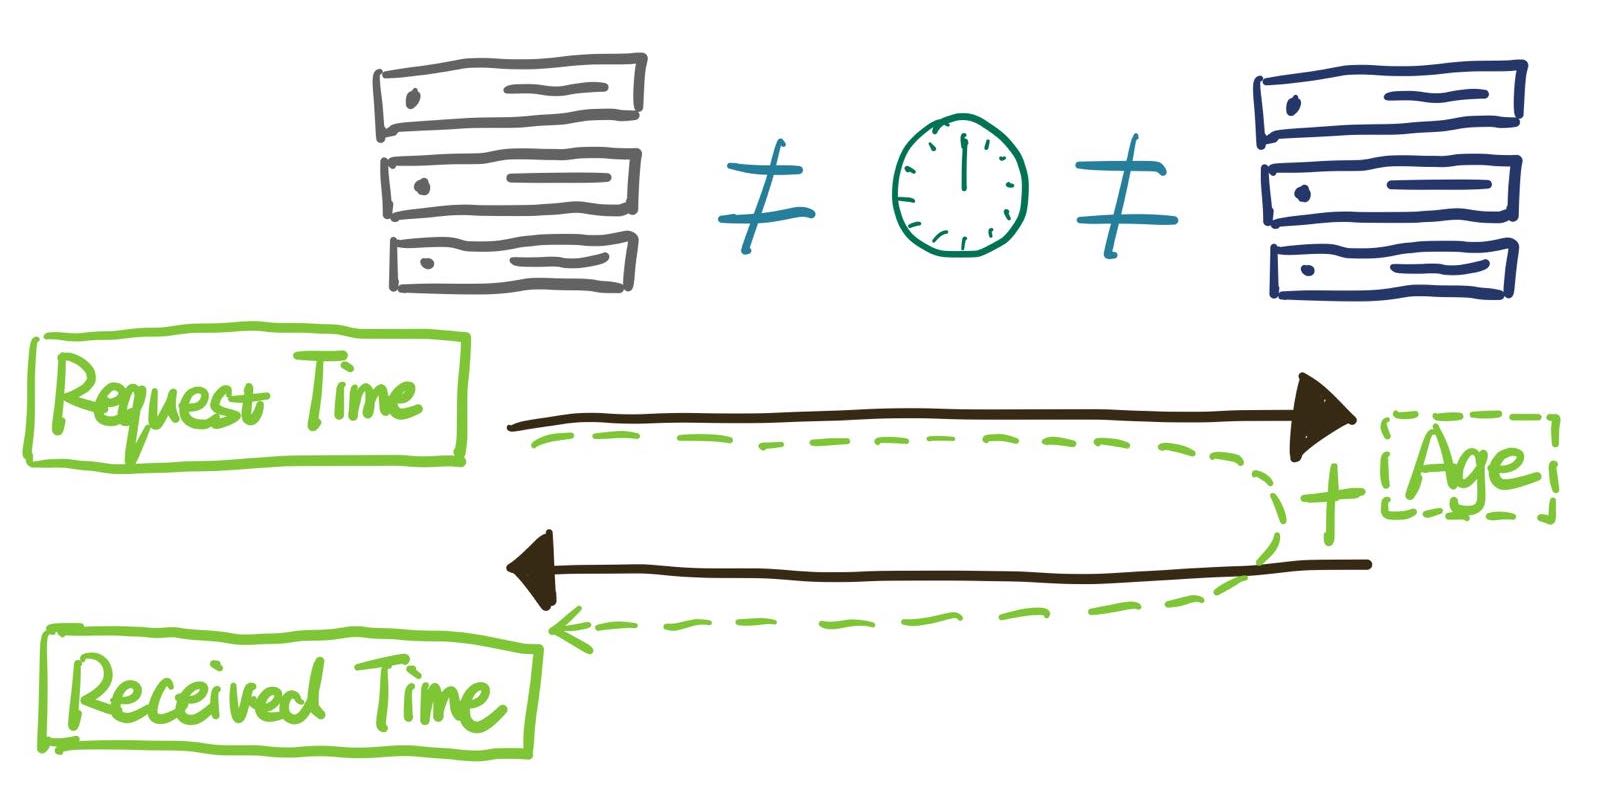 ≠ ≠
Request Time
+ Age
Received Time